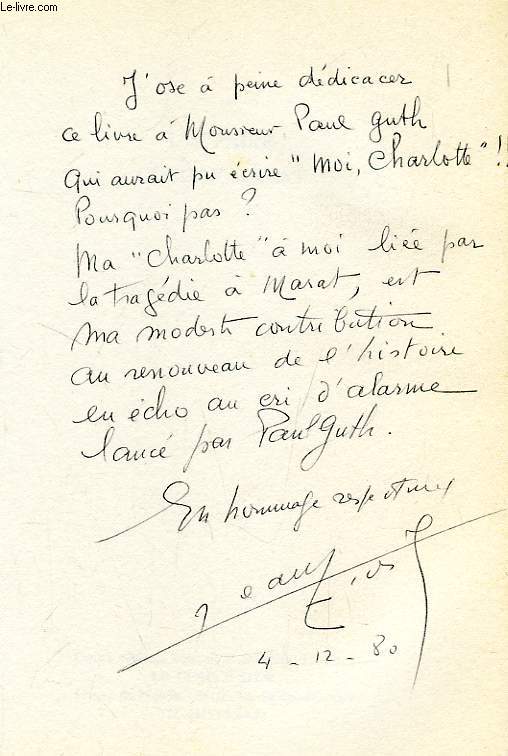 Le-livre.com
J'ose à peine dédicacer
ce livre à Monsieur Paul Guth
qui aurait pu écrire "Moi, Charlotte" !!
Pourquoi pas ?
Ma "Charlotte" à moi liée par
la tragédie à Marat, est
ma modeste contribution
au renouveau de l'histoire
en écho au cri d'alarme
lancé par Paul Guth.
En hommage respectueux
Jean
4 - 12 - 80